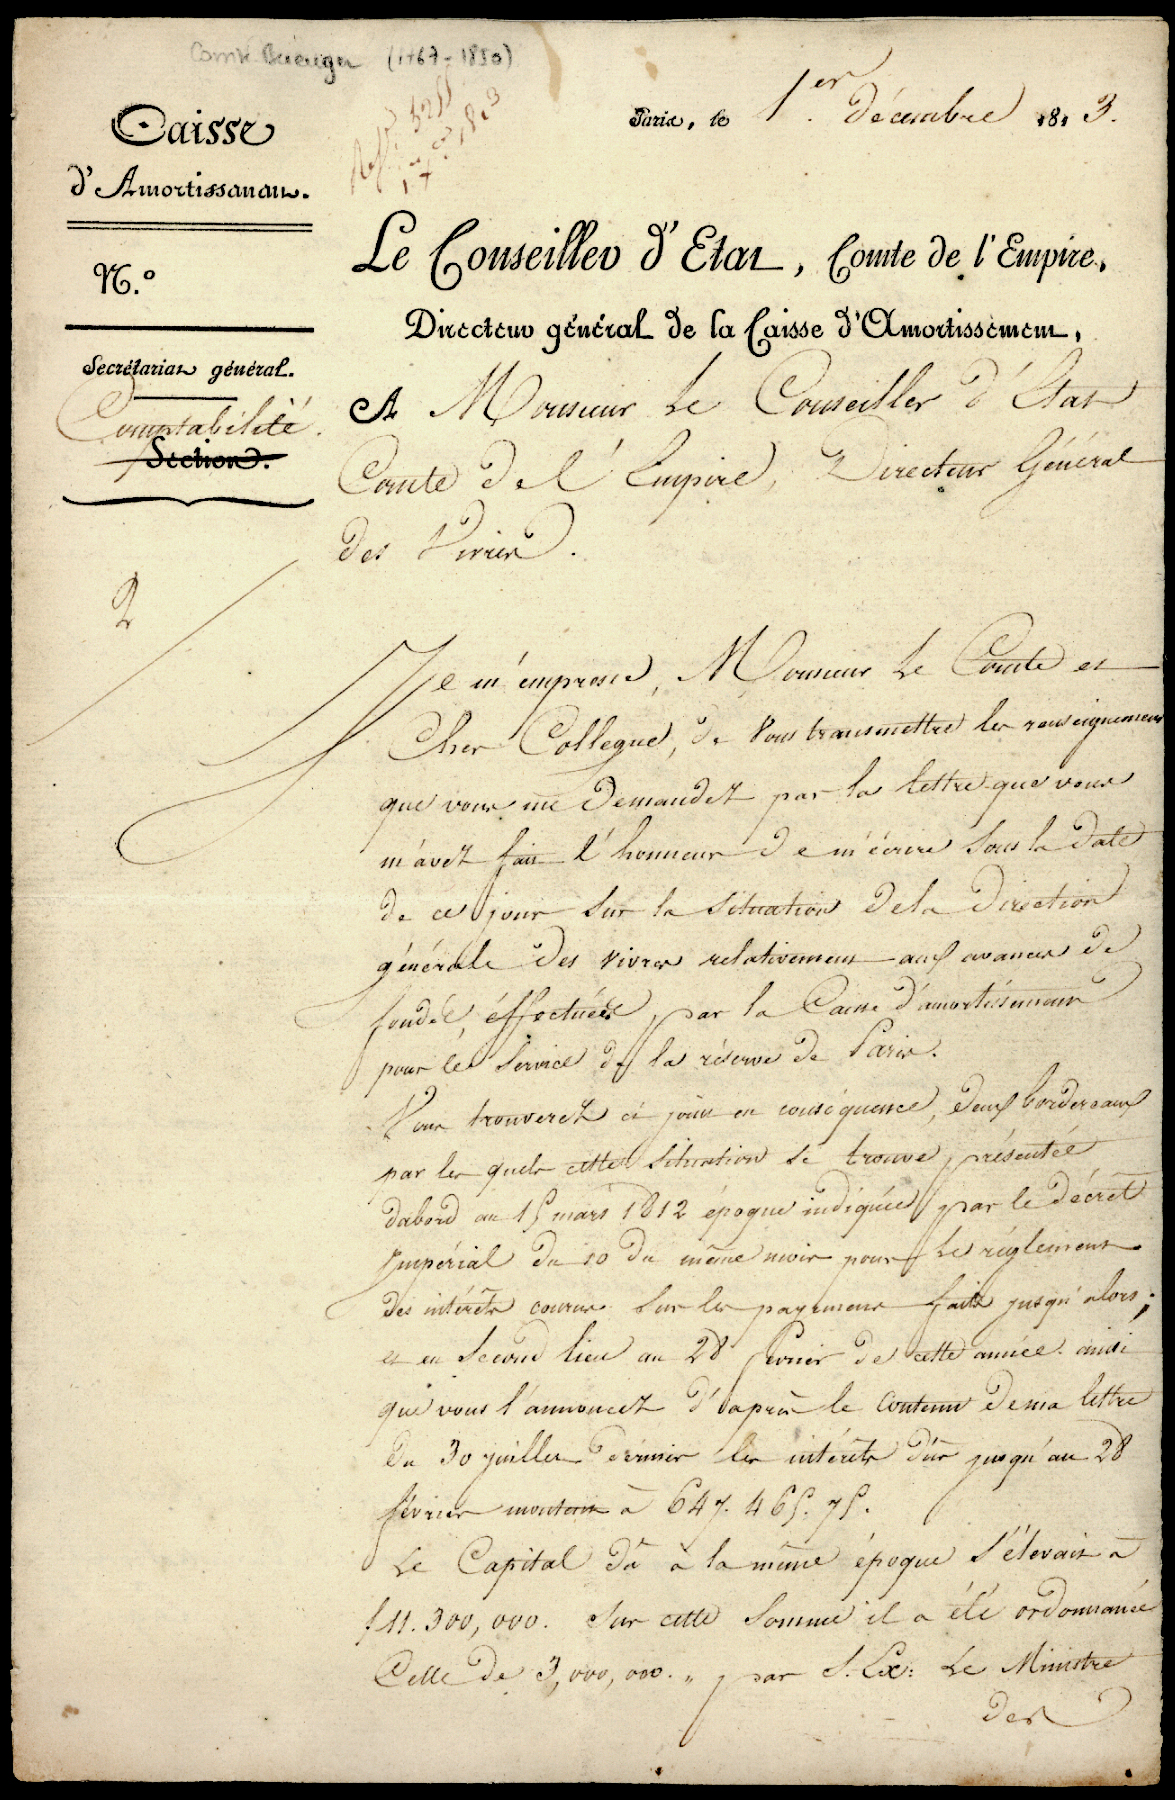 Comte Bérenger (1767-1850)
Caisse
d'Amortissement.
N.°
Secrétariat général.
Comptabilité.
Section.
2
Paris, le 1.er Décembre 1813.
Le Conseiller d'Etat, Comte de l'Empire,
Directeur général de la Caisse d'Amortissement,
A Monsieur Le Conseiller d'Etat
Comte de l'Empire, Directeur Général
des Vivres.
Je m'empresse, Monsieur Le Comte et
Cher Collegue, de Vous transmettre les renseignemens
que vous me Demandez par la lettre que vous
m'avez fait l'honneur de m'écrire sous la Date
de ce jour sur la situation de la Direction
générale des vivres relativement aux avances de
fonds, éffectuées par la Caisse d'amortissement
pour le Service de la réserve de Paris.
Vous trouverez ci joint en conséquence, deux bordereaux
par les quels cette situation se trouve présentée
dabord au 15 mars 1812 époque indiquée par le décret
Impérial du 10 du même mois pour le réglement
des intérêts courus sur les payemens faits jusqu'alors;
et en Second lieu au 28 fevrier de cette année. ainsi
que vous l'annoncez d'après le contenu de ma lettre
du 30 juillet dernier les intérêts dûs jusqu'au 28
février montent à 647.465.75.
Le Capital dû à la même époque s'élevait à
f 11.300,000. Sur cette Somme il a été ordonnancé
Celle de 3,000,000. „ par S. Ex: Le Ministre
des